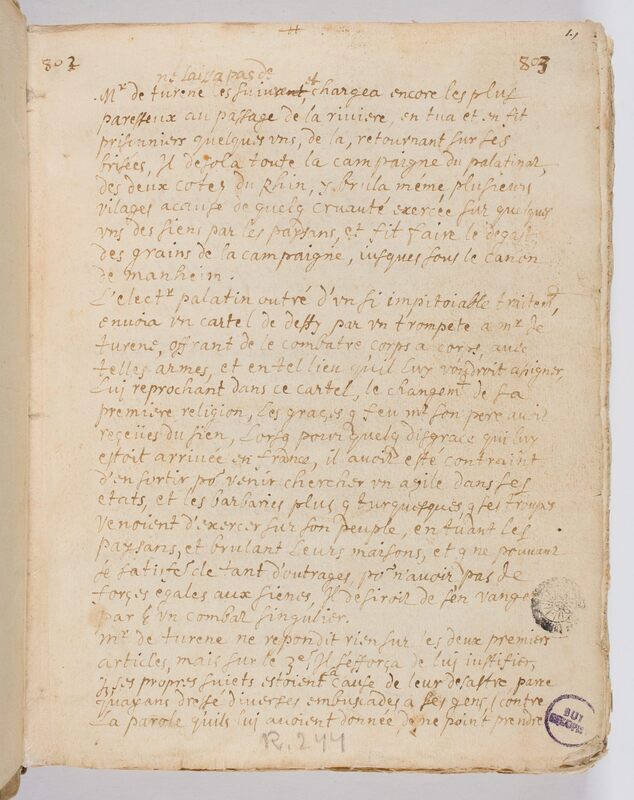 802
803
ne laissa pas de
Mr de turene les suivant, et chargea encore les plus
paresseux au passage de la riviere, en tua et en fit
prisonniers quelques uns, de la, retournant sur ses
brisées, Il desola toute la campaigne du palatinat,
des deux cotes du Rhin, y brula méme plusieurs
vilages a cause de quelq cruauté exercée sur quelques
uns des siens par les paysans, et fit faire le degast
des grains de la campaigne, jusques sous le canon
de manheim.
L'electr palatin outré d'un si impitoiable traitemt,
envoia un cartel de deffy par un trompete a mr de
turene, offrant de le combatre corps a corps, avec
telles armes, et en tel lieu qu'il luy voudroit asigner,
Lui reprochant dans ce cartel, le changemt de sa
premiere religion, les graces q feu mr son pere avoit
reçeües du sien, Lorsq pour quelq disgrace qui luy
estoit arrivée en france, il avoit esté contraint
d'en sortir po venir chercher un asile dans ses
etats, et les barbaries plus q turquesques, q ses troupes
venoient d'exercer sur son peuple, en tuant les
paysans, et brulant leurs maisons, et q ne pouvant
se satisfe de tant d'outrages, po n'avoir pas de
forçes egales aux sienes, Il desiroit de s'en vanger
par un combat singulier.
mr de turene ne repondit rien sur les deux premiers
articles, mais sur le 3e, Il s'efforça de lui justifier,
q ses propres sujets estoient la cause de leur desastre, parce
qu'ayans dressé diverses embuscades a ses gens (contre
la parole qu'ils lui avoient donnée, de ne point prendre
R. 244